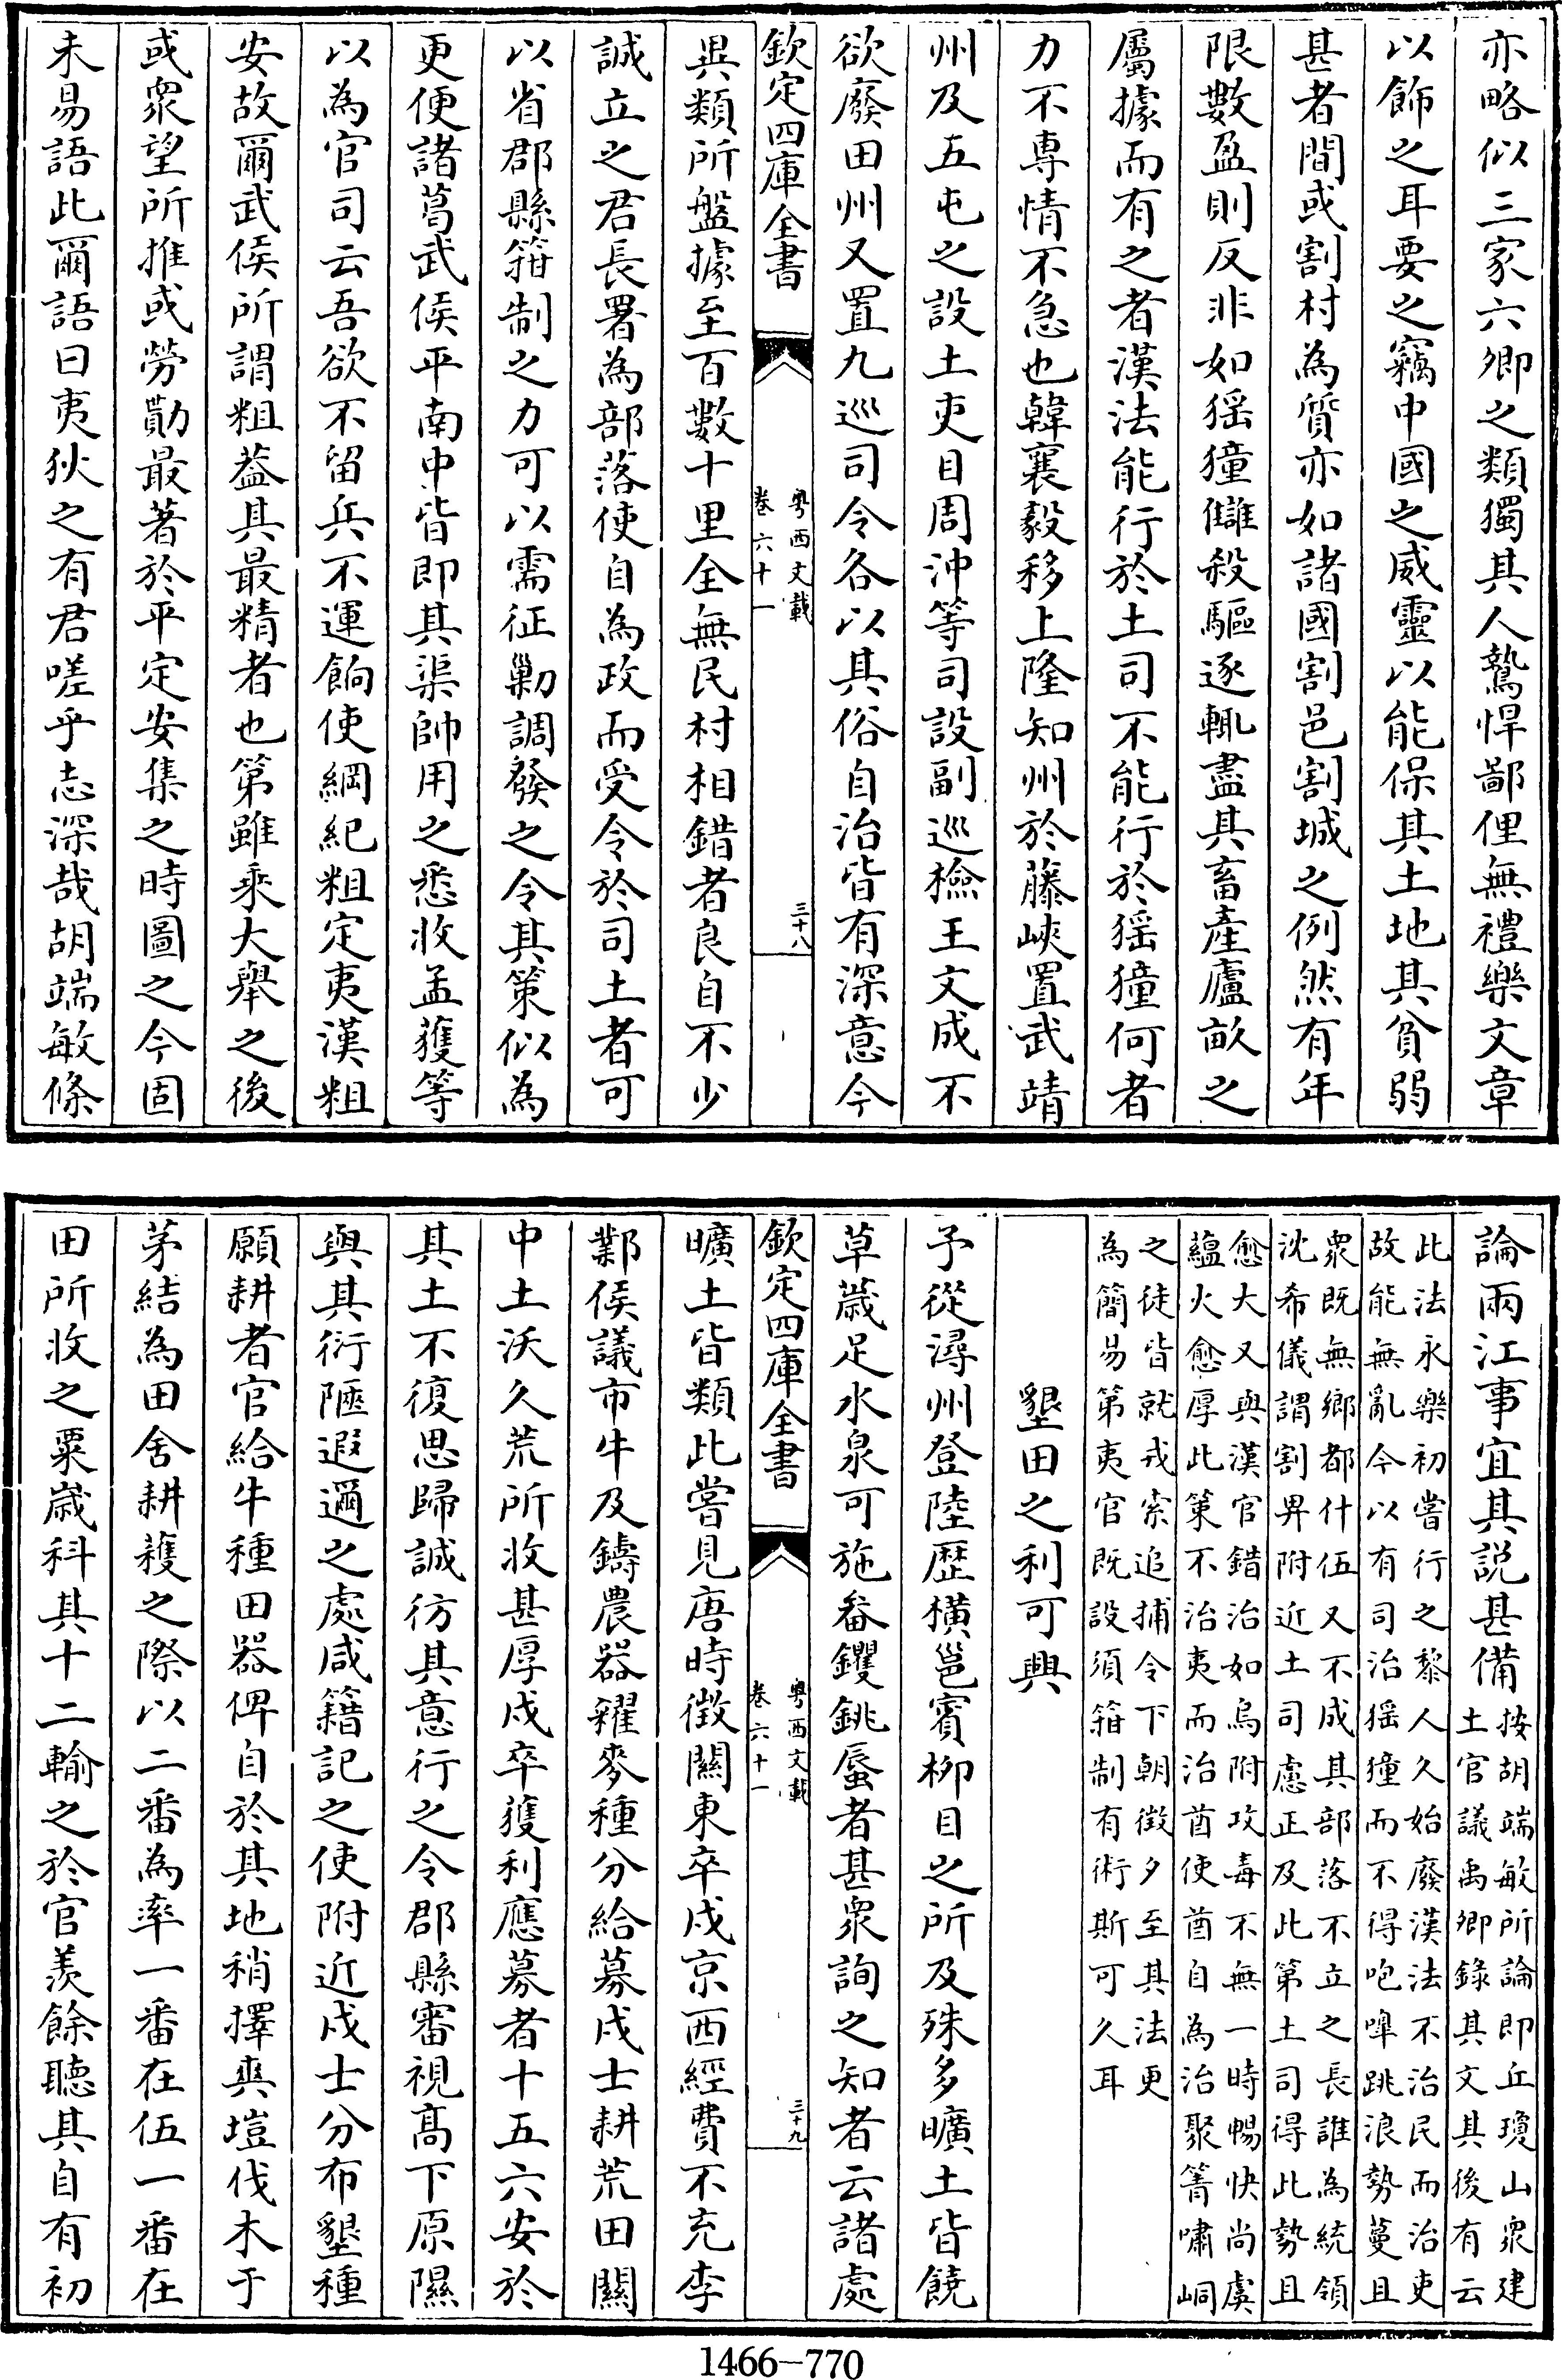 亦略似三家六卿之類獨其人鷙悍鄙俚無禮樂文章
以飾之耳要之竊中國之威靈以能保其土地其貧弱
甚者間或割村為質亦如諸國割邑割城之例然有年
限數盈則反非如猺獞讎殺驅逐輒盡其畜產廬畝之
屬據而有之者漢法能行於土司不能行於猺獞何者
力不專情不急也韓襄毅移上隆知州於藤峽置武靖
州及五屯之設土吏目周沖等司設副巡檢王文成不
欲廢田州又置九巡司令各以其俗自治皆有深意今
欽定四庫全書
粵西文載
卷六十一
三十八
異類所盤據至百數十里全無民村相錯者良自不少
誠立之君長署為部落使自為政而受令於司土者可
以省郡縣箝制之力可以需征勦調發之令其策似為
更便諸葛武侯平南中皆即其渠帥用之悉收孟獲等
以為官司云吾欲不留兵不運餉使綱紀粗定夷漢粗
安故爾武侯所謂粗葢其最精者也第雖乘大舉之後
或衆望所推或勞勩最著於平定安集之時圖之今固
未易語此爾語曰夷狄之有君嗟乎志深哉胡端敏條
論兩江事宜其說甚備按胡端敏所論即丘瓊山衆建
土官議禹卿錄其文其後有云
此法永樂初嘗行之黎人久始廢漢法不治民而治吏
故能無亂今以有司治猺獞而不得咆嘷跳浪勢蔓且
衆既無鄉都什伍又不成其部落不立之長誰為統領
沈希儀謂割畀附近土司慮正及此第土司得此勢且
愈大又與漢官錯治如烏附攻毒不無一時暢快尚虞
蘊火愈厚此策不治夷而治酋使酋自為治聚箐嘯峒
之徒皆就戎索追捕令下朝徴夕至其法更
為簡易第夷官既設須箝制有術斯可久耳
墾田之利可興
予從潯州登陸歴橫邕賓柳目之所及殊多曠土皆饒
草葴足水泉可施畚钁銚蜃者甚衆詢之知者云諸處
欽定四庫全書
粵西文載
卷六十一
三十九
曠土皆類此嘗見唐時徴關東卒戍京西經費不充李
鄴侯議市牛及鑄農器糴麥種分給募戍士耕荒田關
中土沃久荒所收甚厚戍卒獲利應募者十五六安於
其土不復思歸誠彷其意行之令郡縣審視高下原隰
與其衍陿遐邇之處咸籍記之使附近戍士分布墾種
願耕者官給牛種田器俾自於其地稍擇爽塏伐木于
茅結為田舍耕穫之際以二番為率一番在伍一番在
田所收之粟歳科其十二輸之於官羨餘聽其自有初
1466—770